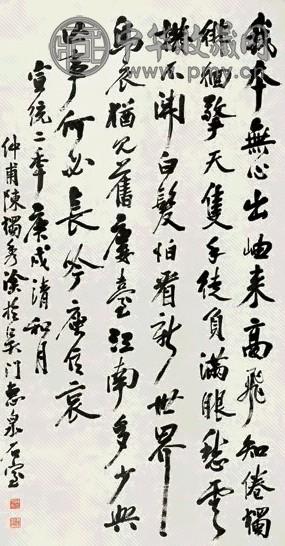 我本無心出岫来高飛知倦獨
徘徊擎天隻手徒負滿眼愁雲
撥不開白髮怕看新世界
烏衣猶見舊樓臺江南多少興
亡事何必長吟庾信哀
宣統二年庚戌清和月
仲甫陳獨秀塗於吳門惠泉石室
中华收藏网